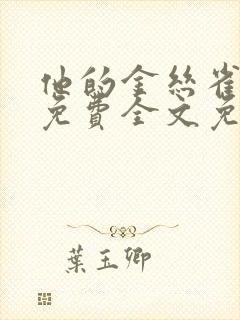 他的金絲雀
免費全文免
葉玉卿